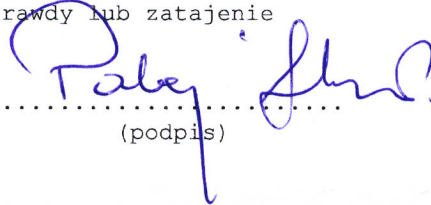 rawdy lub zatajenie
..............................
(podpis)